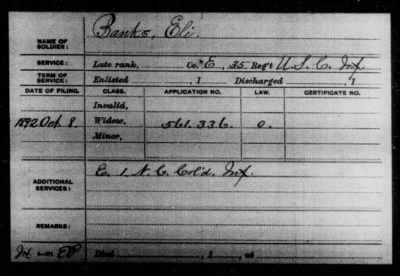 NAME OF SOLDIER: Banks, Eli.
SERVICE: Late rank, Co. E, 35 Reg't U. S. C. Inf.
TERM OF SERVICE: Enlisted , 1 Discharged , 1
DATE OF FILING. CLASS. APPLICATION NO. LAW. CERTIFICATE NO.
Invalid,
1892 Oct 8. Widow, 561.336. O.
Minor,
ADDITIONAL SERVICES: E. 1 N. C. Col'd. Inf.
REMARKS:
Died , 1 , at